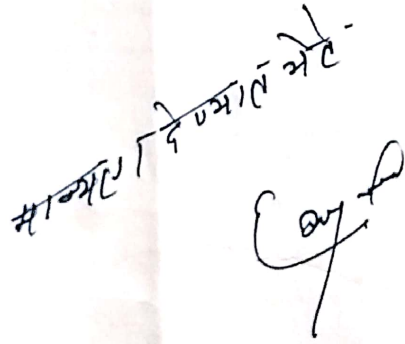 मान्यता देण्यात येते